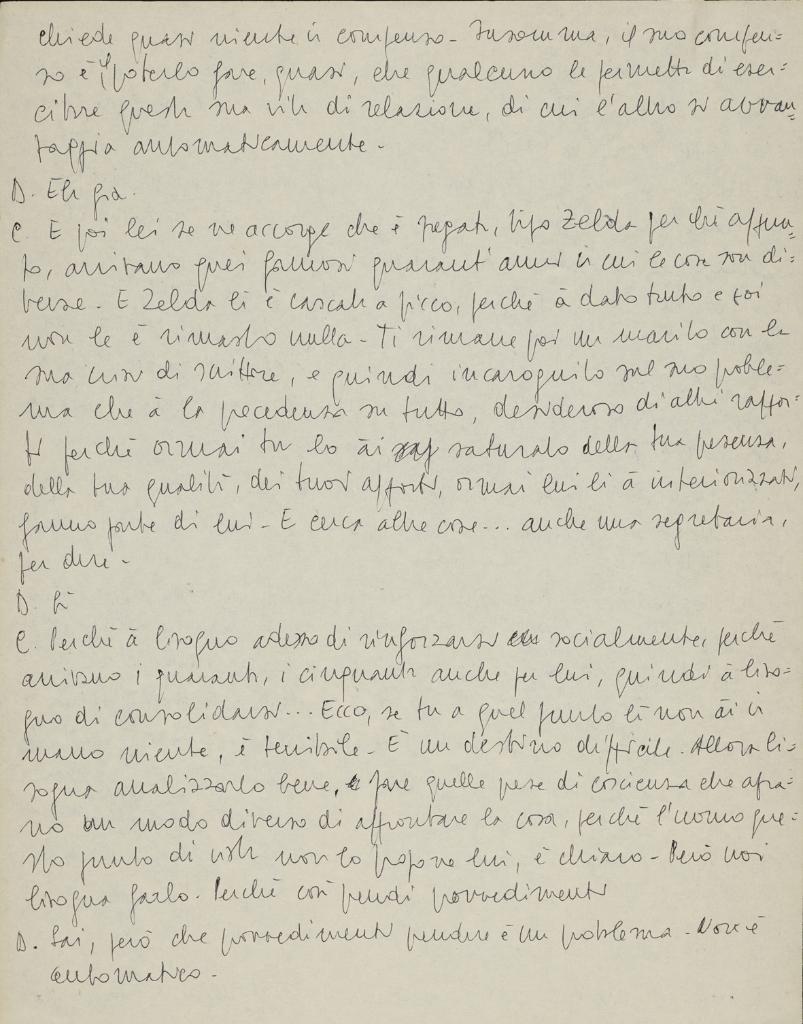 chiede quasi niente in compenso - Insomma, il suo compen-
so è il poterlo fare, quasi, che qualcuno le permetta di eser-
citare questa sua vita di relazione, di cui l'altro si avvan=
taggia automaticamente -
D. Eh già.
C. E poi lei se ne accorge che è fregata, tipo Zelda perché appun=
to, arrivano quei famosi quarant'anni in cui le cose son di=
verse - E Zelda lì è cascata a picco, perché à dato tutto e poi
non le è rimasto nulla - Ti rimane poi un marito con la
sua crisi di scrittore, e quindi incarognito sul suo proble=
ma che à la precedenza su tutto, desideroso di altri rappor=
ti perché ormai tu lo ài saturato della tua presenza,
della tua qualità, dei tuoi apporti, ormai lui li à interiorizzati,
fanno parte di lui - E cerca altre cose... anche una segretaria,
per dire -
D. Sì
C. Perché à bisogno adesso di rinforzarsi socialmente, perché
arrivano i quaranta, i cinquanta anche per lui, quindi à biso=
gno di consolidarsi... Ecco, se tu a quel punto lì non ài in
mano niente, è terribile - È un destino difficile. Allora bi=
sogna analizzarlo bene, fare quelle prese di coscienza che apra=
no un modo diverso di affrontare la cosa, perché l'uomo que=
sto punto di vista non lo propone lui, è chiaro - Però noi
bisogna farlo. Perché così prendi provvedimenti
D. Sai, però che provvedimenti prendere è un problema - Non è
automatico -